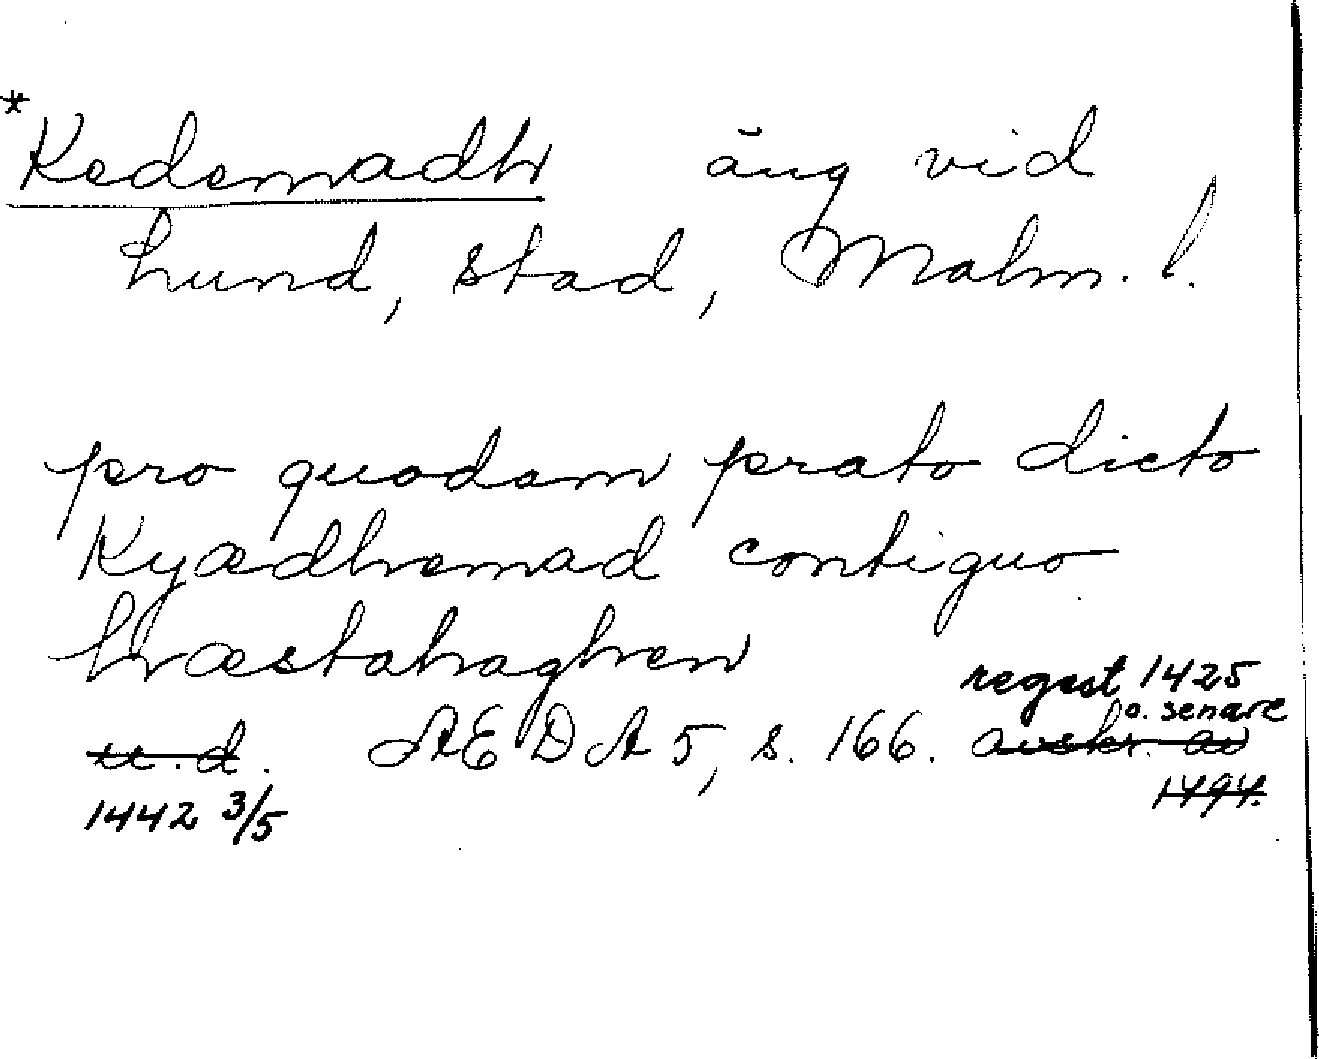 *Kedemadh äng vid
Lund, stad, Malm. l.
pro quodam prato dicto
Kyædhemad contiguo
hræstahaghen
regest 1425
o. senare
u.d. AEDA 5, s. 166. avskr. av
1494.
1442 3/5